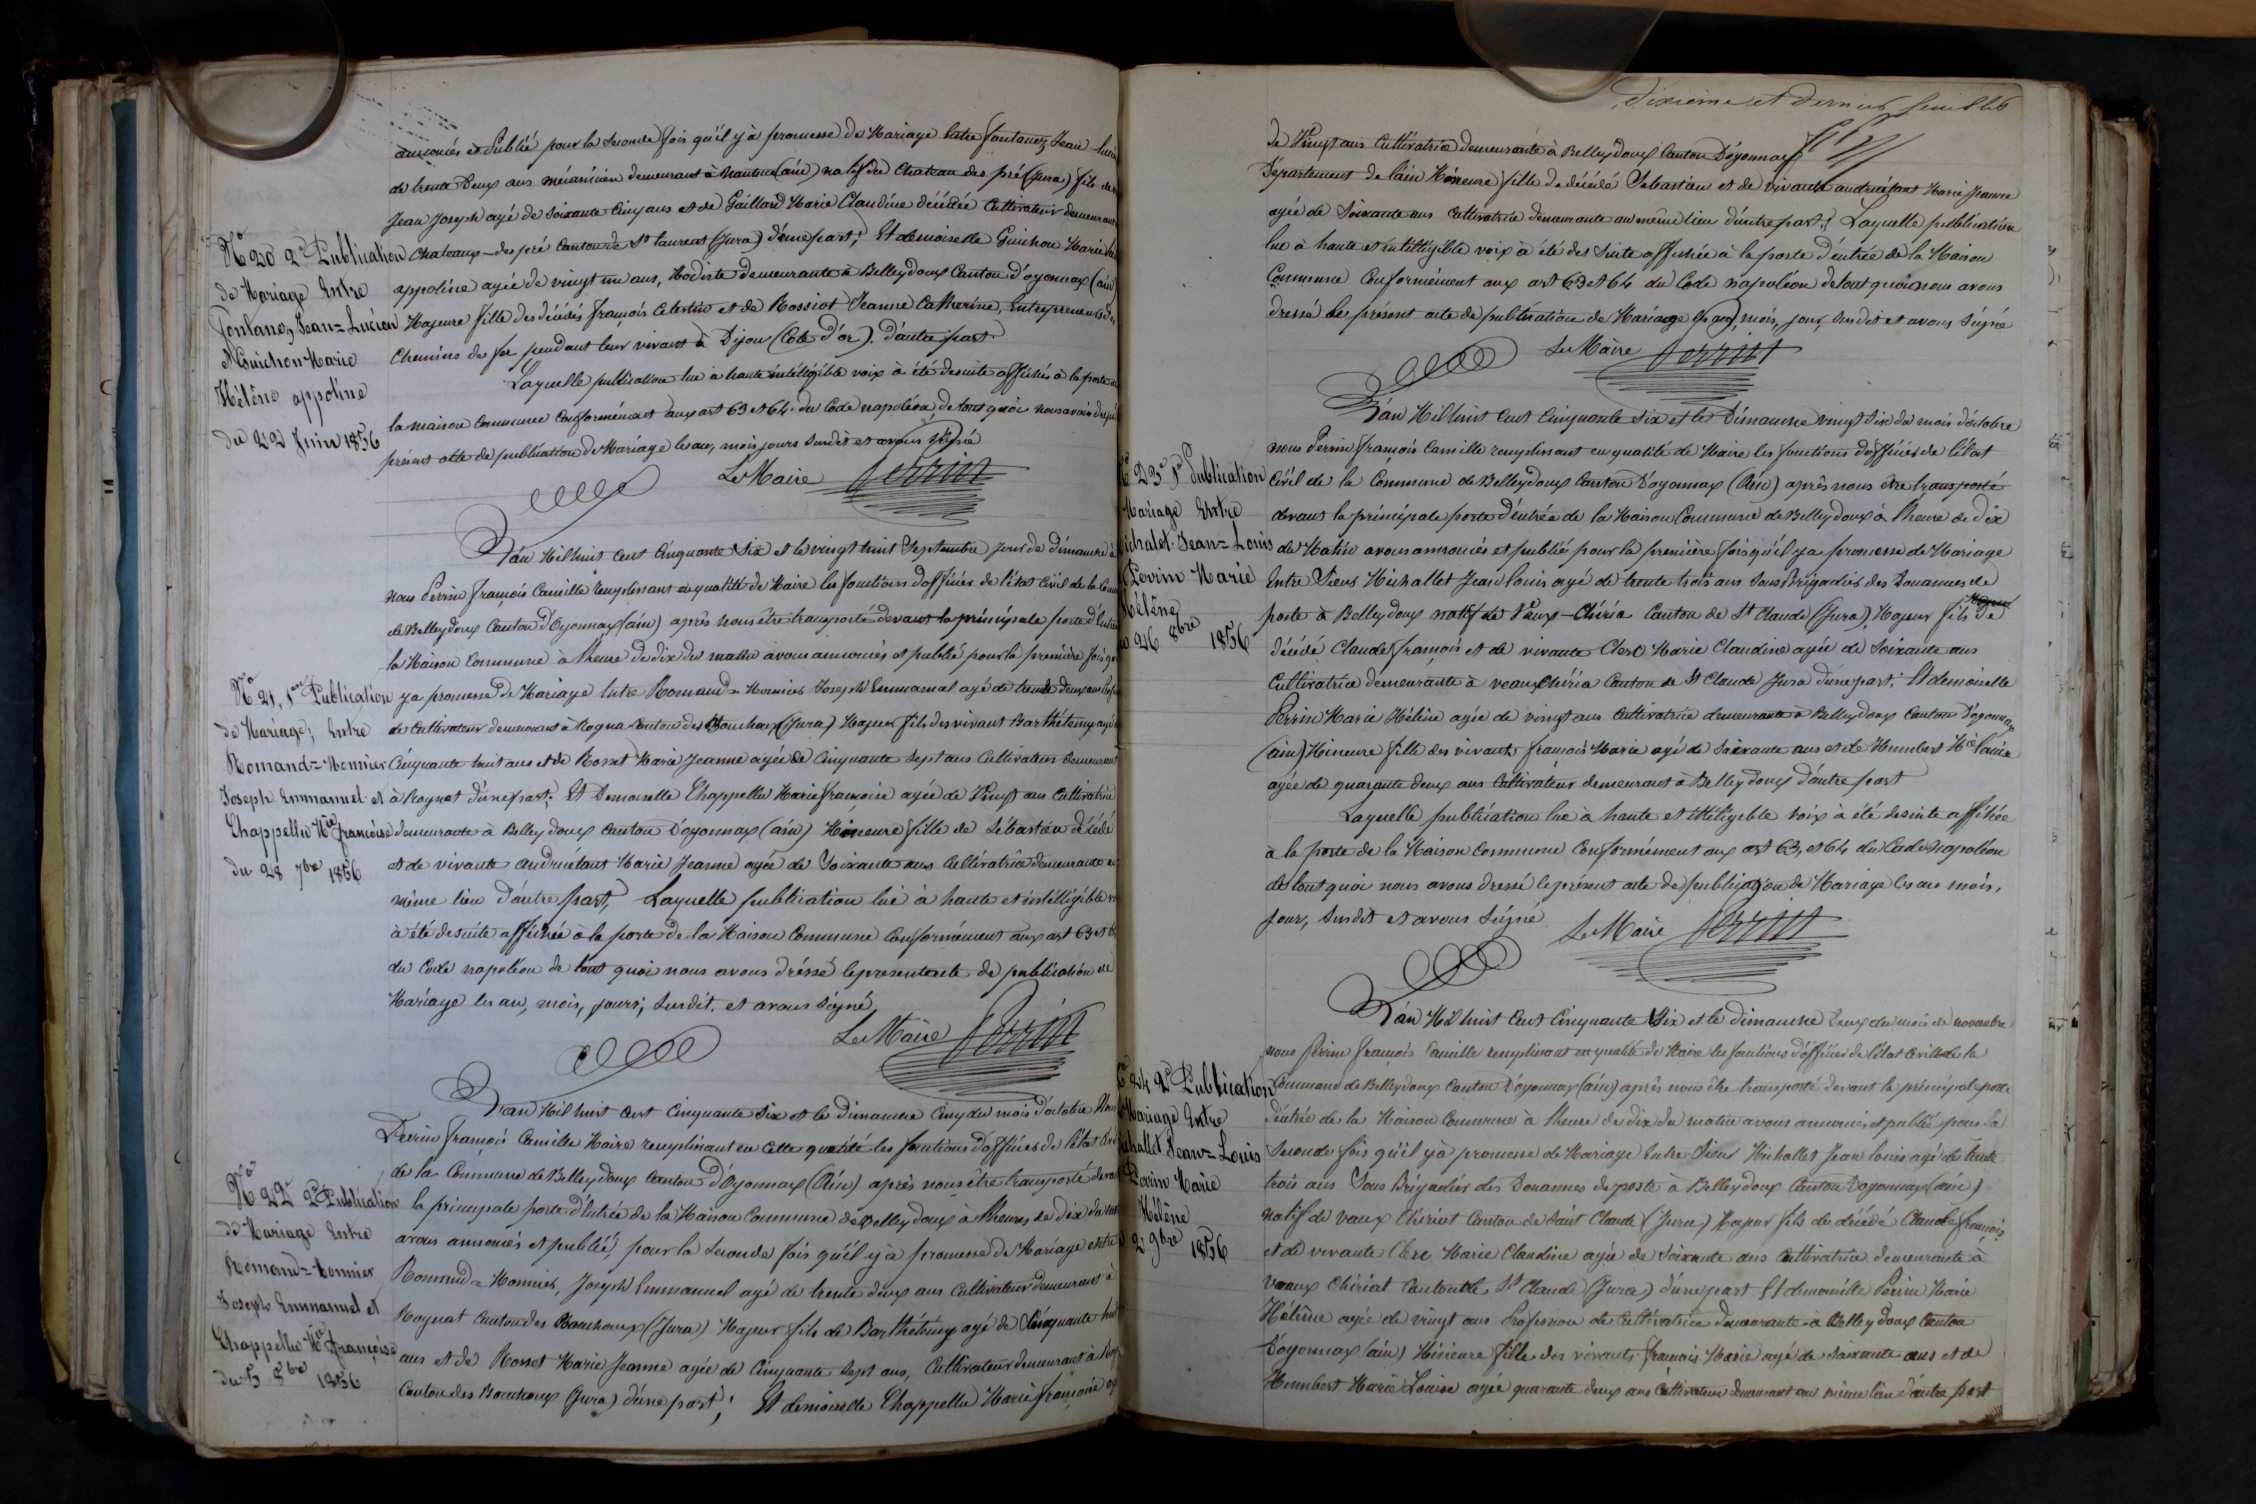 annoncés et Publié pour la Seconde fois qu'il y à promesse de Mariage Entre fontanez Jean Lucien
de trente Deux ans mécanicien demeurant à Nantua (ain) natif du Chateau des pré (Jura) fils de
Jean Joseph agé de soixante Cinq ans et de Gaillard Marie Claudine décédée Cultivateur demeurant
Chateaux-des pré Canton de St laurent (Jura) d'une part; Et demoiselle Guichon Marie
appoline agée de vingt un ans, Modiste demeurante à Belleydoux Canton d'oyonnax (ain
Majeure fille des décédés françois Celestin et de Rossiot Jeanne Catherine, Entrepreneur de
Chemins de fer pendant leur vivant à Dijon (Cote d'or). d'autre part
Laquelle publication lue à haute intélligible voix à été desuite affichés à la porte
la maison Commune Conformément aux art 63 et 64 du Code napoléon, de tout quoi nous avons
présent acte de publication de Mariage les an, mois jours Susdit et avons signé
Le Maire Perrin
No 20 2e Publication
de Mariage Entre
Fontanez Jean=Lucien
& Guichon Marie
Hélène appoline
du 22 Juin 1856
L'an Mil huit Cent Cinquante Six et le vingt huit Septembre jour de dimanche à
nous Perrin françois Camille remplissant en qualité de Maire les fonctions d'officier de l'état Civil de la Com
de Belleydoux Canton d'Oyonnax (ain) après nous être transporté devant la principale porte d'Entrée
la Maison Commune à l'heure de dix du matin avons annoncés et publié pour la première fois qu
y a promesse de Mariage Entre Romand=Monnier Joseph Emmanuel agé de trente deux ans
de Cultivateur demeurant à Rogna Canton des Bouchoux (Jura) Majeur fils des vivant Barthélemy agé
Cinquante huit ans et de Rosset Marie Jeanne agée de Cinquante Sept ans Cultivateur demeurant
à Rognat d'une part. Et Demoiselle Chappellu Marie françoise agée de Vingt ans Cultivatrice
demeurante à Belleydoux Canton d'oyonnax (ain) Mineure fille de Sébastien décédé
et de vivante andruétant Marie Jeanne agée de Soixante ans Cultivatrice demeurante au
même lieu d'autre part, Laquelle publication lue à haute et intélligible
à été desuite affichée à la porte de la Maison Commune Conformément aux art 63 et 6
du Code napoléon de tout quoi nous avons dréssé le present acte de publication de
Mariage les an, mois, jours, Susdit. et avons signé
Le Maire Perrin
No 21, 1ere Publication
de Mariage; Entre
Romand=Monnier
Joseph Emmanuel et
Chappellu Mie françoise
du 28 7bre 1856
L'an Mil huit Cent Cinquante Six et le dimanche Cinq du mois d'octobre Nous
Perrin françois Camille Maire remplissant en Cette qualité les fonctions d'officier de l'état Civil
de la Commune de Belleydoux Canton d'Oyonnax (Ain) après nous être transporté devant
la principale porte d'Entrée de la Maison Commune de Belleydoux à l'heures de dix du matin
avons annoncés et publiés, pour la Seconde fois qu'il y à promesse de Mariage entre
Rommand=Monnier, Joseph Emmanuel agé de trente deux ans Cultivateur demeurant à
Rognat Canton des Bouchoux (Jura) Majeur fils de Barthélemy agé de Cinquante huit
ans et de Rosset Marie Jeanne agée de Cinquante Sept ans, Cultivateur demeurant à Rog
Canton des Bouchoux (Jura) d'une part; Et demoiselle Chappellu Marie françoise ag
No 22 2e Publication
de Mariage Entre
Romand=Monnier
Joseph Emmanuel et
Chappellu Mie françoise
du 5 8bre 1856
Dixième et dernier feuillet
de Vingt ans Cultivatrice demeurante à Belleydoux Canton D'oyonnax
Département de l'ain Mineure fille de décédé Sebastien et de vivante andruétant Marie Jeanne
agée de Soixante ans Cultivatrice demeurante au même lieu d'autre part; Laquelle publication
lue à haute et intelligible voix à été des Suite affichée à la porte d'entrée de la Maison
Commune Conformément aux art 63 et 64 du Code napoléon de tout quoi nous avons
dressé le présent acte de publication de Mariage les an, mois, jour, Susdit et avons Signé
Le Maire Perrin
L'an Mil huit Cent Cinquante Six et le Dimanche vingt Six du mois d'octobre
nous Perrin françois Camille remplissant en qualité de Maire les fonctions d'officier de l'état
Civil de la Commune de Belleydoux Canton D'oyonnax (Ain) après nous être transporté
devant la principale porte d'entrée de la Maison Commune de Belleydoux à l'heure de dix
du Matin avons annoncés et publié pour la première fois qu'il y a promesse de Mariage
Entre Sieur Michallet Jean louis agé de trente trois ans Sous Brigadier des Douannes de
poste à Belleydoux natif de Vaux-Chiria Canton de St Claude (Jura) Majeur fils de
décédé Claude françois et de vivante Clerc Marie Claudine agée de Soixante ans
Cultivatrice demeurante à veaux Chiria Canton de St Claude Jura d'une part. Et demoiselle
Perrin Marie Hélène agée de vingt ans Cultivatrice demeurante à Belleydoux Canton D'oyonnax
(ain) Mineure fille des vivants françois Marie agé de Soixante ans et de Humbert Mie louise
agée de quarante deux ans Cultivateur demeurant à Belleydoux d'autre part
Laquelle publication lue à haute et intéligible voix à été desuite affichée
à la porte de la Maison Commune Conformément aux art 63, et 64 du Code Napoléon
de tout quoi nous avons dressé le présent acte de publication de Mariage les an mois,
jour, Susdit et avons Signé
Le Maire Perrin
No 23 1re Publication
Mariage Entre
Michalet Jean=Louis
Perrin Marie
Hélène
26 8bre 1856
L'an Mil huit Cent Cinquante Six et le dimanche Deux du mois de novembre
nous Perrin françois Camille remplissant en qualité de Maire les fonctions d'officier de l'état Civil de la
Commune de Belleydoux Canton D'oyonnax (ain) après nous être transporté devant la principale porte
d'entrée de la Maison Commune à l'heure de dix du matin avons annoncés et publié pour la
Seconde fois qu'il y à promesse de Mariage Entre Sieur Michallet Jean louis agé de trente
trois ans Sous Brigadier des Douannes de poste à Belleydoux Canton D'oyonnax (ain)
natif de vaux Chiriat Canton de Saint Claude (Jura) Majeur fils de décédé Claude françois
et de vivante Clerc Marie Claudine agée de Soixante ans Cultivatrice demeurante à
vaux Chiriat Canton de St Claude (Jura) d'une part Et demoiselle Perrin Marie
Hélène agée de vingt ans Profession de Cultivatrice demeurante à Belleydoux Canton
D'oyonnax (ain) Mineure fille des vivants françois Marie agé de Soixante ans et de
Humbert Marie Louise agée quarante deux ans Cultivateur demeurant au même lieu d'autre part
24 2e Publication
Mariage Entre
Michallet Jean=Louis
Perrin Marie
Hélène
2 9bre 1856